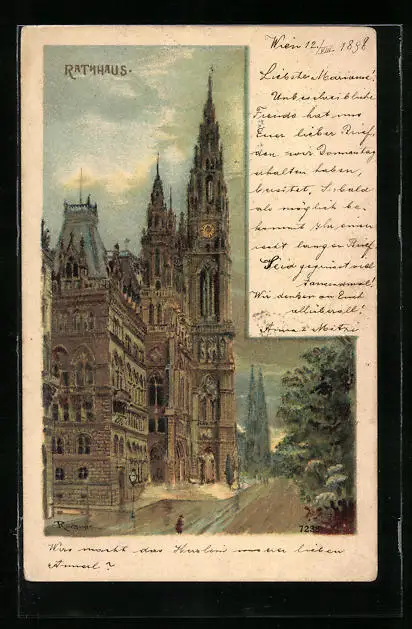 RATHHAUS.
Wien 12/VIII. 1898
Liebste Mariann!
Unbeschreibliche
Freude hat uns
Euer lieber Brief,
den wir Donnerstag
erhalten haben,
bereitet. Sobald
als möglich be-
kommt Ihr einen
recht langen Brief.
Seid gegrüsst viel
tausendmal!
Wir denken an Euch
allüberall!
Anna & Mitzi
7238
Was macht das unserer lieben
Annerl?